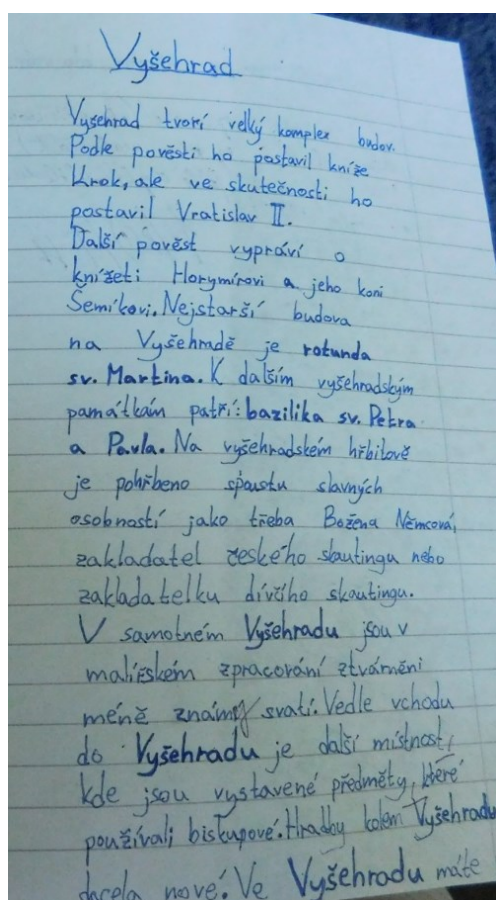 Vyšehrad
Vyšehrad tvoří velký komplex budov.
Podle pověsti ho postavil kníže
Krok, ale ve skutečnosti ho
postavil Vratislav II.
Další pověst vypráví o
knížeti Horymírovi a jeho koni
Šemíkovi. Nejstarší budova
na Vyšehradě je rotunda
sv. Martina. K dalším vyšehradským
památkám patří: bazilika sv. Petra
a Pavla. Na vyšehradském hřbitově
je pohřbeno spoustu slavných
osobností jako třeba Božena Němcová,
zakladatel českého skautingu nebo
zakladatelku dívčího skautingu.
V samotném Vyšehradu jsou v
malířském zpracování ztvárněni
méně známý svatí. Vedle vchodu
do Vyšehradu je další místnost,
kde jsou vystavené předměty, které
používali biskupové. Hradby kolem Vyšehradu
docela nové. Ve Vyšehradu máte